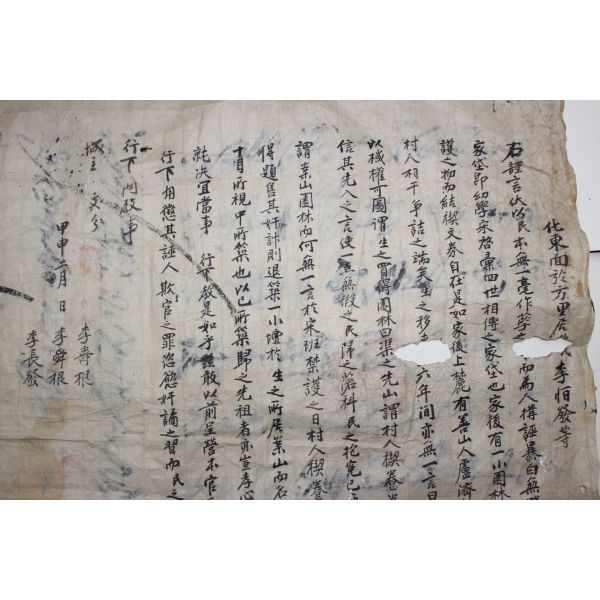 化東面於方里居民李怡發等
右謹言伏以民本無一毫作孽之而爲人搆誣暴白無
家岱卽幼學宋啓彙四世相傳之家岱也家後有一小園林
護之物而結稧文券自在是如家後上麓有養山人盧濟
村人相干爭詰之端矣生之移 六年間亦無一言
以械權可圖謂生之買得園林曰渠之先山謂村人稧卷
信其先入之言使一無無假之民歸之落科民之抱冤已
謂業山園林而何無一言於宋班禁護之日村人稧卷
得題售其奸計則退築一小壇於生之所居業山而名
十月所視中所築也以己所築歸之先祖者亦豈孝心
訛決宜當事 行下敎是如乎玆敢以前呈營本官
行下相懲其誣人欺官之罪恣慾奸譎之習而民之
行下向敎事
城主 處分
甲申二月 日 李壽根
李舜根
李長發